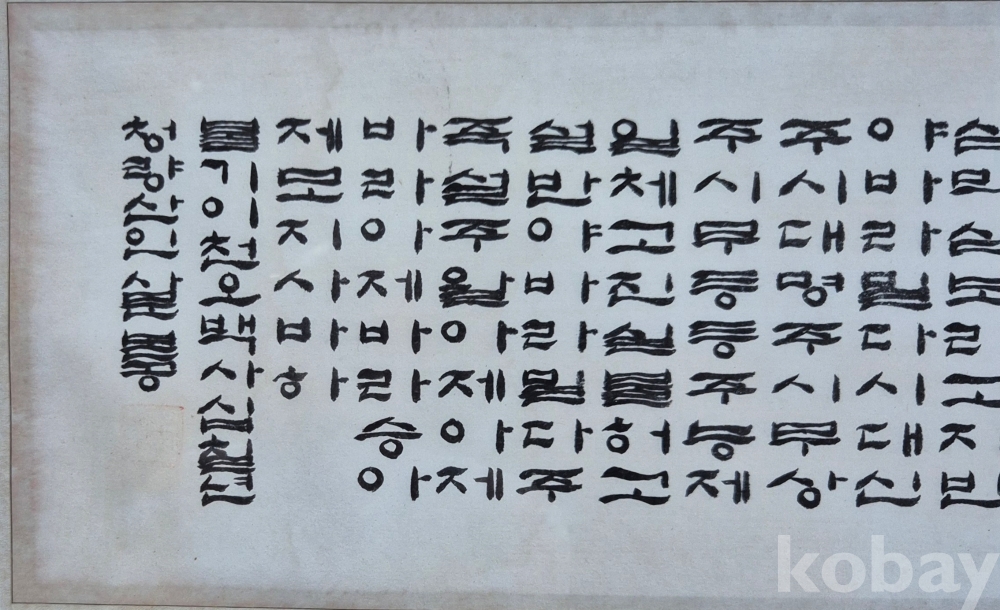 삼먁삼보리고지반
야바라밀다시대신
주시대명주시무상
주시무등등주능제
일체고진실불허고
설반야바라밀다주
즉설주왈아제아제
바라아제바라승아
제모지사바하
불기이천오백사십칠년
청량산인
kobay